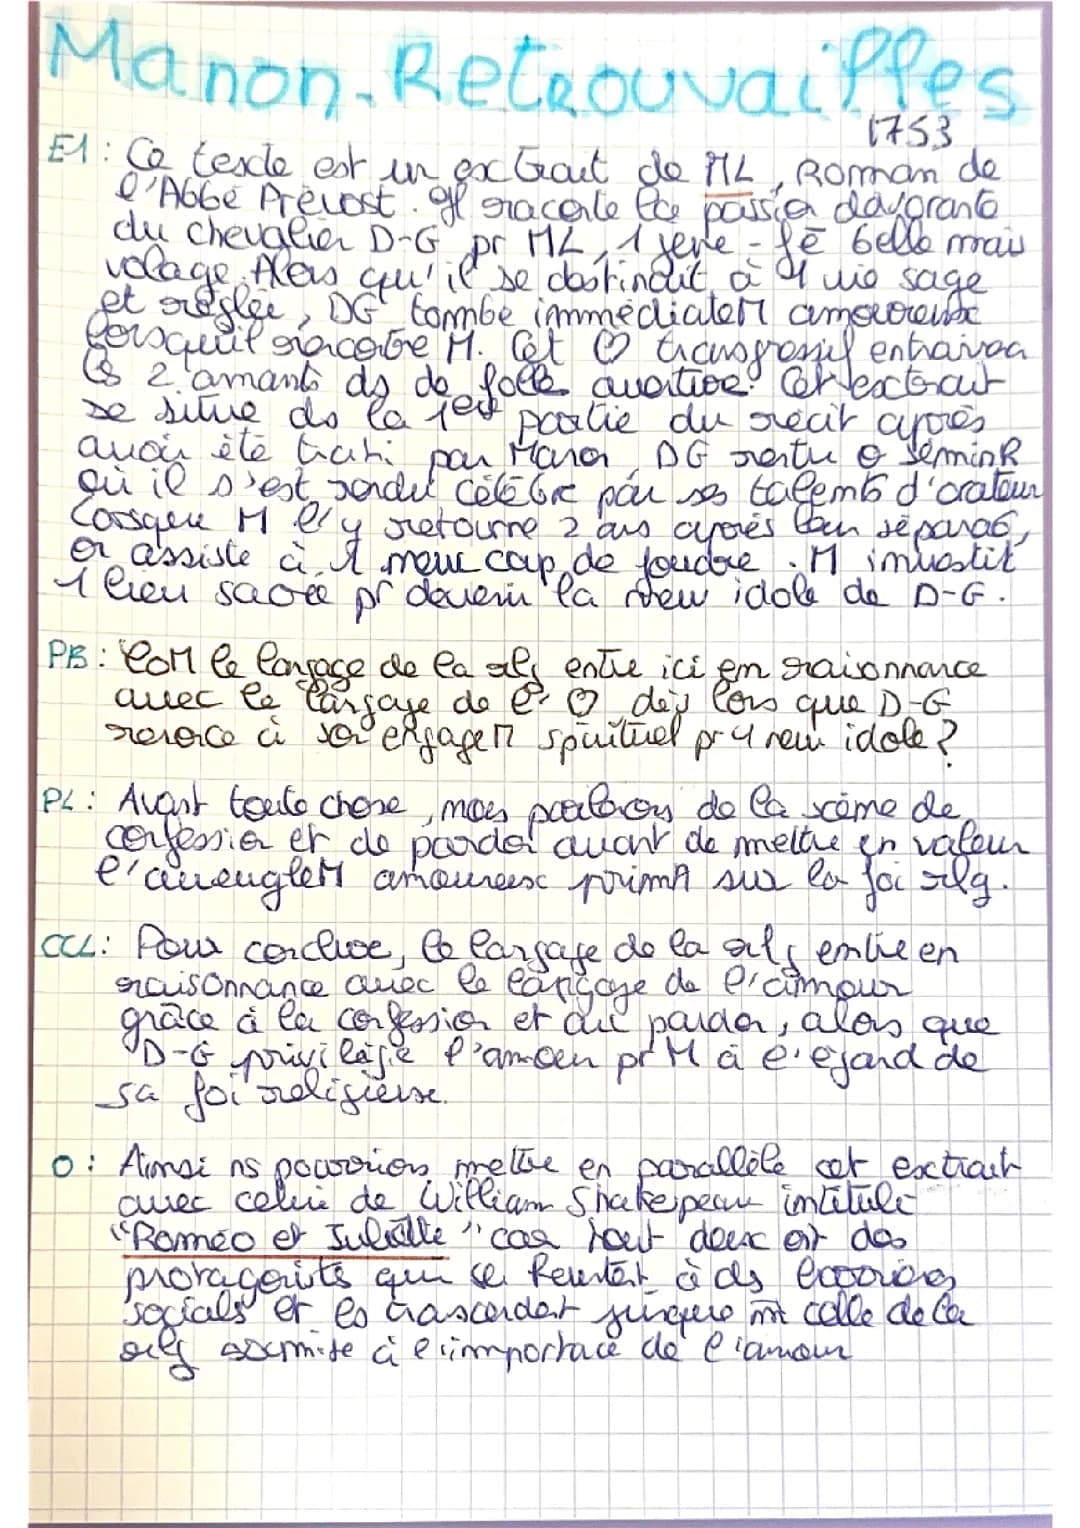 Manon-Retrouvailles
1753
E1: Ce texte est un extrait de ML, Roman de
l'Abbé Prévost. Il raconte la passion dévorante
du chevalier D-G pr ML, 1 jeune - fe belle mais
volage. Alors qu'il se destinait à 1 vie sage
et réglée, DG tombe immédiateM amoureux
lorsqu'il rencontre M. Cet ♡ transgressif entrainera
les 2 amants ds de folle aventure. Cet extrait
se situe ds la 1ere partie du récit après
avoir été trahi par Manon, DG rentre o séminR
où il s'est rendu célèbre par ses talents d'orateur
Lorsque M l'y retourne 2 ans après leur séparaô,
on assiste à 1 nouv coup de foudre. M investit
1 lieu sacré pr devenir la new idole de D-G.
PB: CoM le langage de la rlg entre ici en raisonnance
avec le langage de l' ♡ dès lors que D-G
renonce à son engageM spirituel pr 1 new idole?
PL: Avant toute chose, nous parlerons de la scène de
confession et de pardon avant de mettre en valeur
l'aveugleM amoureux primA sur la foi rlg.
CCL: Pour conclure, le langage de la rlg entre en
raisonnance avec le langage de l'amour
grâce à la confession et au pardon, alors que
D-G privilégie l'amour pr M à l'égard de
sa foi religieuse.
O: Ainsi ns pourrions mettre en parallèle cet extrait
avec celui de William Shakespeare intitulé
"Roméo et Juliette" car tout deux ont des
protagonists qui se heurtent à ds
socials et les transcendent jusque celle de la
rlg soumise à l'importace de l'amour